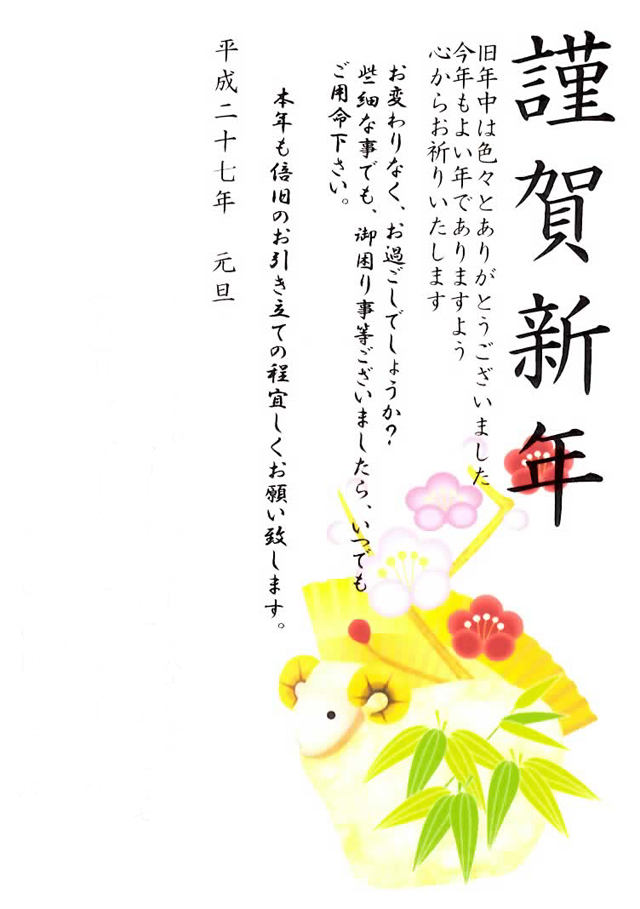 謹賀新年
旧年中は色々とありがとうございました
今年もよい年でありますよう
心からお祈りいたします
お変わりなく、お過ごしでしょうか?
些細な事でも、御困り事等ございましたら、いつでも
ご用命下さい。
本年も倍旧のお引き立ての程宜しくお願い致します。
平成二十七年 元旦